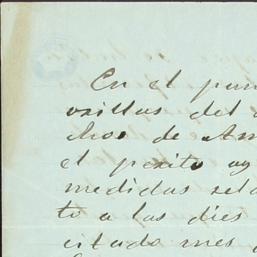 En el pun
orillas del
chos de Am
el perito ag
medidas sela
to a las dies
citado mes